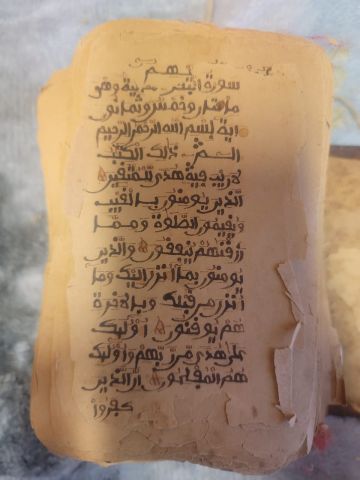 سورة البقرة مدنية وهي
مائتان وخمس وثمانون
ءاية بسم الله الرحمن الرحيم
الم ذلك الكتب
لا ريب فيه هدى للمتقين
الذين يومنون بالغيب
ويقيمون الصلوة ومما
رزقنهم ينفقون والذين
يومنون بما أنزل إليك وما
أنزل من قبلك وبالاخرة
هم يوقنون أولئك
على هدى من ربهم وأولئك
هم المفلحون إن الذين
كفروا